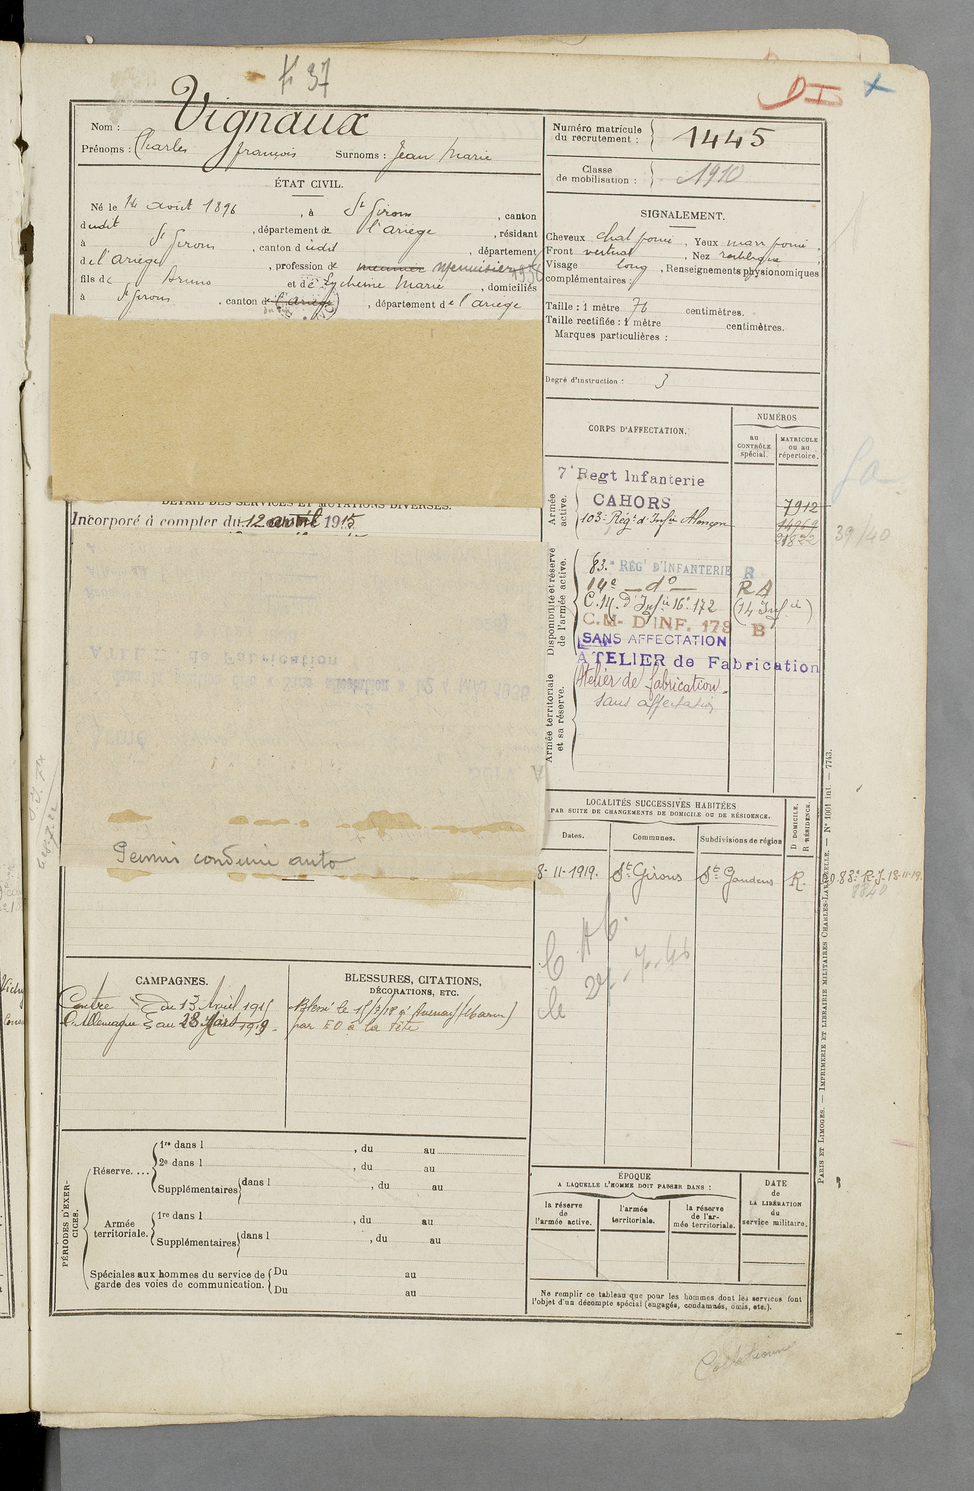 37
Nom : Vignaux
Prénoms : Charles françois Surnoms : Jean Marie
Numéro matricule du recrutement : 1445
Classe de mobilisation : 1910
ÉTAT CIVIL.
Né le 14 août 1896, à St Girons, canton
dudit, département de l'ariège, résidant
à St Girons, canton d udit, département
de l'ariège, profession de meunier menuisier
fils de Bruno et de Marie, domiciliés
à St Girons, canton de l'Ariège, département de l'ariège
SIGNALEMENT.
Cheveux chat foncé, Yeux marr foncé
Front vertical, Nez rectiligne
Visage long, Renseignements physionomiques
complémentaires :
Taille : 1 mètre 70 centimètres.
Taille rectifiée : 1 mètre centimètres.
Marques particulières :
Degré d'instruction : 3
DÉTAIL DES SERVICES ET MUTATIONS DIVERSES.
Incorporé à compter du 12 avril 1915
Permis conduire auto
CORPS D'AFFECTATION.
NUMÉROS
au CONTRÔLE spécial.
MATRICULE ou au répertoire.
Armée active.
7e Regt Infanterie
CAHORS
7912
103e Rég. d'Infie Alençon
14969
21822
39/40
Disponibilité et réserve de l'armée active.
83e RÉGt D'INFANTERIE R
14e do RA
C.M. d'Infie 16e 172 (14 Infie)
C.M. D'INF. 173 B
SANS AFFECTATION
ATELIER de Fabrication
Armée territoriale et sa réserve.
Atelier de fabrication.
sans affectation
LOCALITÉS SUCCESSIVES HABITÉES
PAR SUITE DE CHANGEMENTS DE DOMICILE OU DE RÉSIDENCE.
Dates. Communes. Subdivisions de région D DOMICILE. R RÉSIDENCE.
8-11-1919. St Girons St Gaudens R.
83e R.I. 18-11-19.
CAMPAGNES.
Contre l'Allemagne du 13 Avril 1915
au 28 Mars 1919.
BLESSURES, CITATIONS,
DÉCORATIONS, ETC.
Blessé le 15/7/18 à (Marne)
par EO à la tête
PÉRIODES D'EXERCICES.
Réserve....
1re dans l , du au
2e dans l , du au
Supplémentaires dans l , du au
Armée territoriale.
1re dans l , du au
Supplémentaires dans l , du au
Spéciales aux hommes du service de garde des voies de communication.
Du au
Du au
ÉPOQUE
A LAQUELLE L'HOMME DOIT PASSER DANS :
la réserve de l'armée active.
l'armée territoriale.
la réserve de l'armée territoriale.
DATE de LA LIBÉRATION du service militaire.
Ne remplir ce tableau que pour les hommes dont les services font
l'objet d'un décompte spécial (engagés, condamnés, omis, etc.).
PARIS ET LIMOGES. — IMPRIMERIE ET LIBRAIRIE MILITAIRES CHARLES-LAVAUZELLE. — N° 1001 int. — 7743.